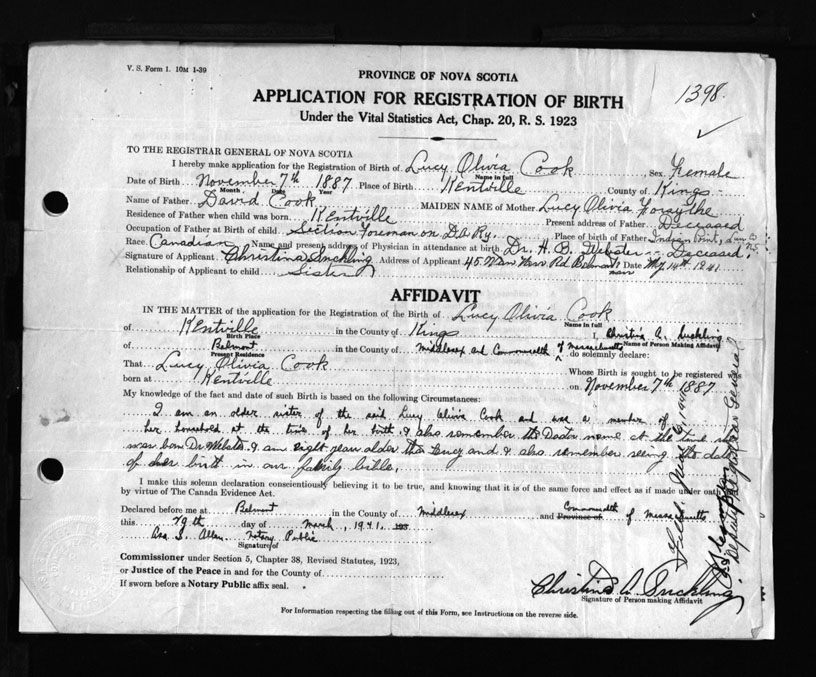 V. S. Form 1. 10M 1-39
PROVINCE OF NOVA SCOTIA
1398.
APPLICATION FOR REGISTRATION OF BIRTH
Under the Vital Statistics Act, Chap. 20, R. S. 1923
TO THE REGISTRAR GENERAL OF NOVA SCOTIA
I hereby make application for the Registration of Birth of Lucy Olivia Cook Sex Female
Name in full
Date of Birth November 7th 1887 Place of Birth Kentville County of Kings
Month Date Year
Name of Father David Cook MAIDEN NAME of Mother Lucy Olivia Forsythe
Residence of Father when child was born Kentville Present address of Father Deceased
Occupation of Father at Birth of child Section Foreman on D.A.Ry. Place of Birth of Father Indian Point,
Race Canadian Name and present address of Physician in attendance at birth Dr. H. B. Webster -- Deceased.
Signature of Applicant Christina Suckling Address of Applicant 45 Rd Belmont Date 14th 1941
Relationship of Applicant to child Sister
AFFIDAVIT
IN THE MATTER of the application for the Registration of the Birth of Lucy Olivia Cook
Name in full
of Kentville in the County of Kings I, Christina A. Suckling
Birth Place Name of Person Making Affidavit
of Belmont in the County of Middlesex and Commonwealth of Massachusetts do solemnly declare:
Present Residence
That Lucy Olivia Cook Whose Birth is sought to be registered was
born at Kentville on November 7th 1887
My knowledge of the fact and date of such Birth is based on the following Circumstances:
I am an older sister of the said Lucy Olivia Cook and was a member of
her household at the time of her birth. I also remember the Doctor name at the time she
was born Dr. Webster. I am eight years older than Lucy and I also remember seeing the date
of her birth in our family bible.
I make this solemn declaration conscientiously believing it to be true, and knowing that it is of the same force and effect as if made under oath
by virtue of The Canada Evidence Act.
Declared before me at Belmont in the County of Middlesex and Province of Commonwealth of Massachusetts
this 29th day of March, 1941.
Asa S. Allen Notary Public
Signature of
Commissioner under Section 5, Chapter 38, Revised Statutes, 1923,
or Justice of the Peace in and for the County of
If sworn before a Notary Public affix seal.
Christina A. Suckling
Signature of Person making Affidavit
For Information respecting the filling out of this Form, see Instructions on the reverse side.
Filed June 6, 1941
Deputy Registrar General